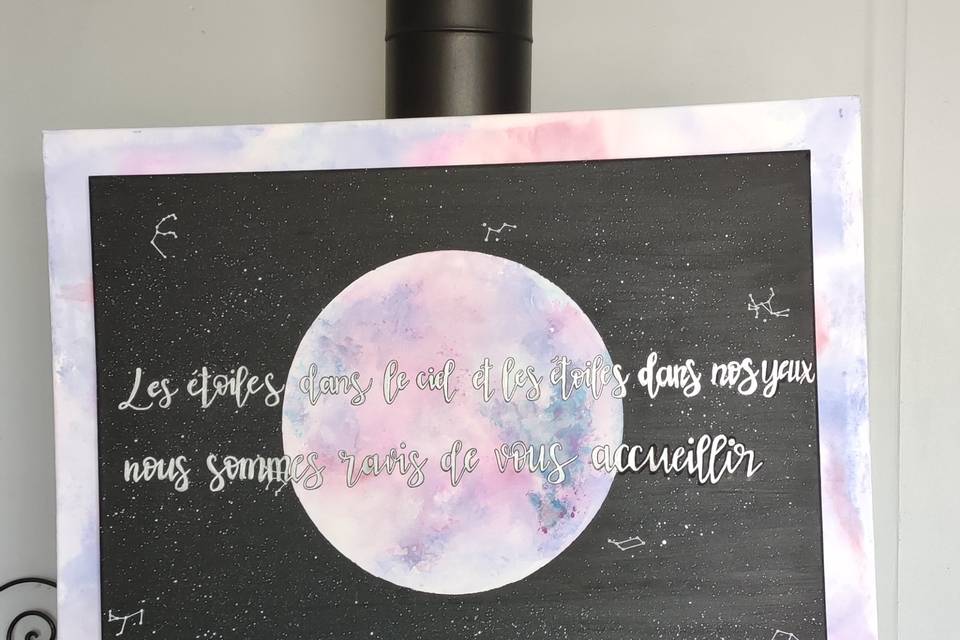 Les étoiles dans le ciel et les étoiles dans nos yeux
nous sommes ravis de vous accueillir